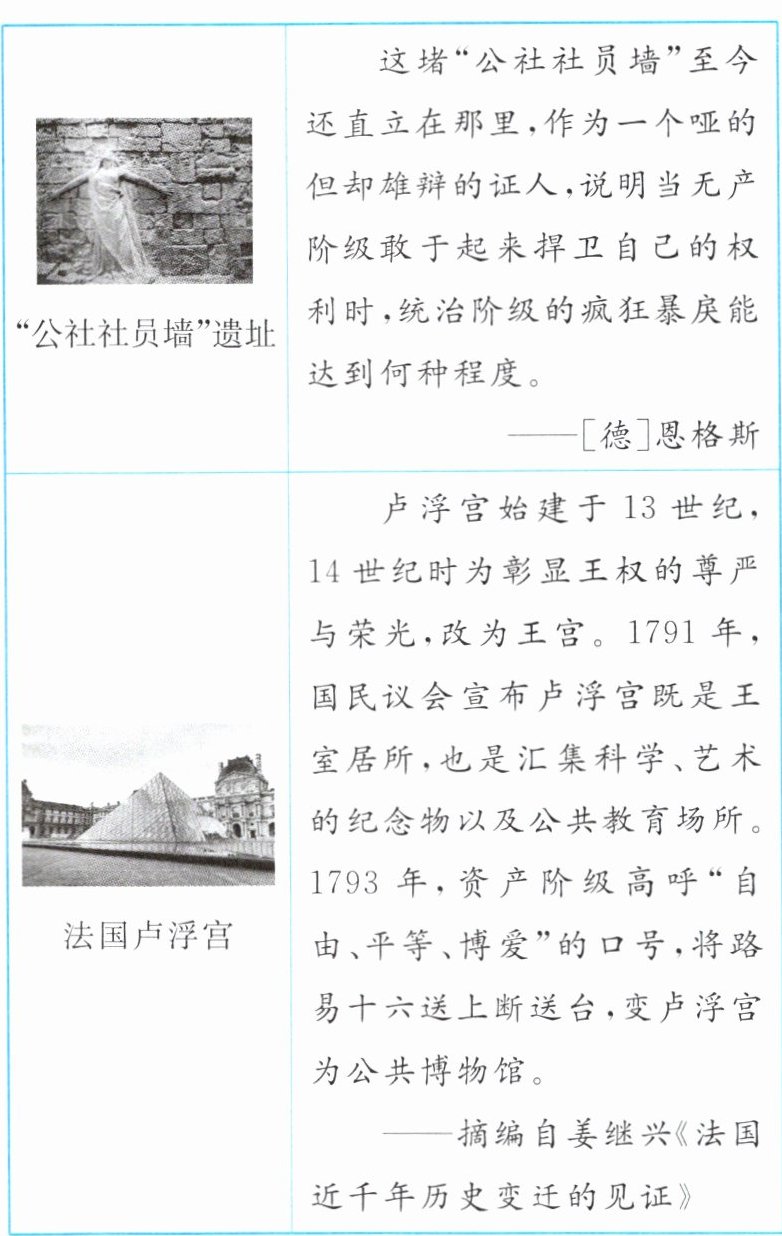 这堵“公社社员墙”至今
还直立在那里,作为一个哑的
但却雄辩的证人,说明当无产
阶级敢于起来捍卫自己的权
利时,统治阶级的疯狂暴戾能
达到何种程度。
——[德]恩格斯
“公社社员墙”遗址
卢浮宫始建于 13 世纪,
14 世纪时为彰显王权的尊严
与荣光,改为王宫。1791 年,
国民议会宣布卢浮宫既是王
室居所,也是汇集科学、艺术
的纪念物以及公共教育场所。
1793 年,资产阶级高呼“自
由、平等、博爱”的口号,将路
易十六送上断送台,变卢浮宫
为公共博物馆。
——摘编自姜继兴《法国
近千年历史变迁的见证》
法国卢浮宫